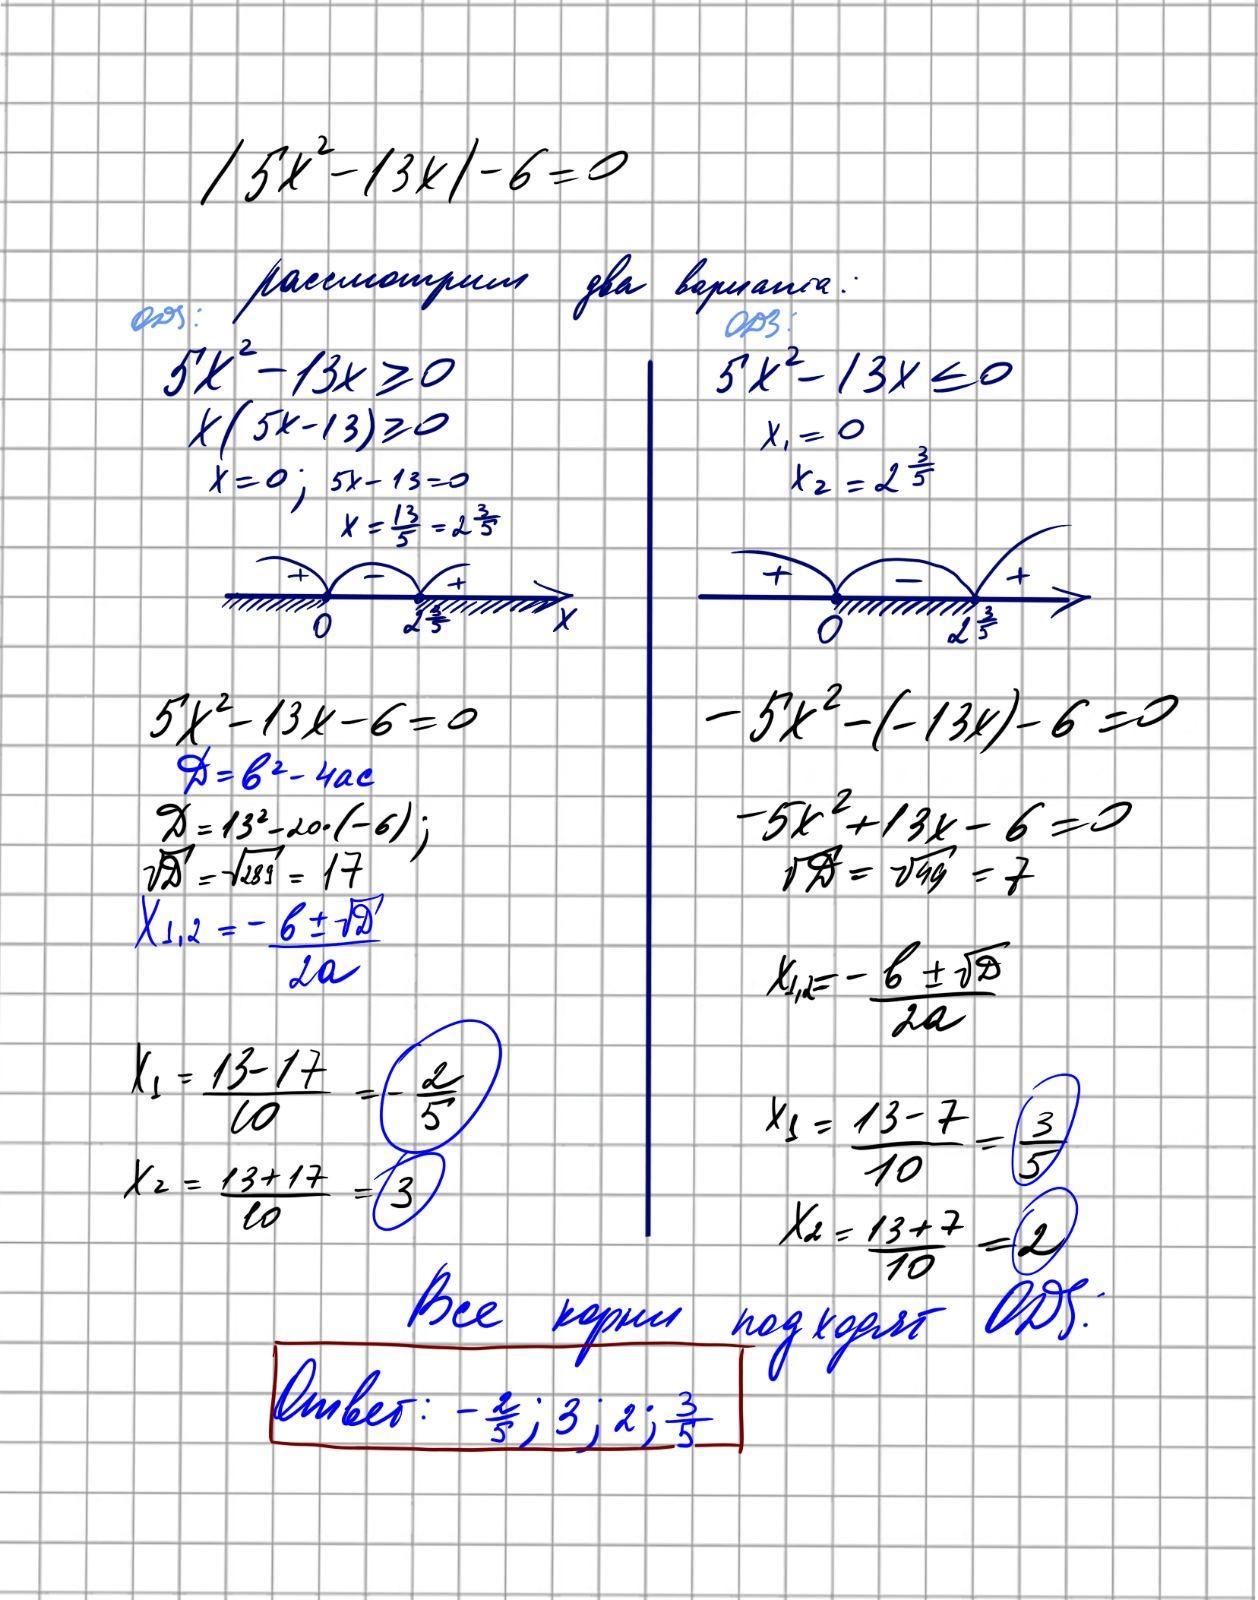 |5x² - 13x| - 6 = 0
рассмотрим два варианта:
ОДЗ:
5x² - 13x ≥ 0
x(5x - 13) ≥ 0
x = 0; 5x - 13 = 0
x = 13/5 = 2 3/5
+ - +
0 2 3/5 x
5x² - 13x - 6 = 0
D = b² - 4ac
D = 13² - 20·(-6);
√D = √289 = 17
x1,2 = - b ± √D / 2a
x1 = 13 - 17 / 10 = - 2/5
x2 = 13 + 17 / 10 = 3
ОДЗ:
5x² - 13x ≤ 0
x1 = 0
x2 = 2 3/5
+ - +
0 2 3/5
- 5x² - (-13x) - 6 = 0
-5x² + 13x - 6 = 0
√D = √49 = 7
x1,2 = - b ± √D / 2a
x1 = 13 - 7 / 10 = 3/5
x2 = 13 + 7 / 10 = 2
Все корни подходят ОДЗ:
Ответ: - 2/5; 3; 2; 3/5